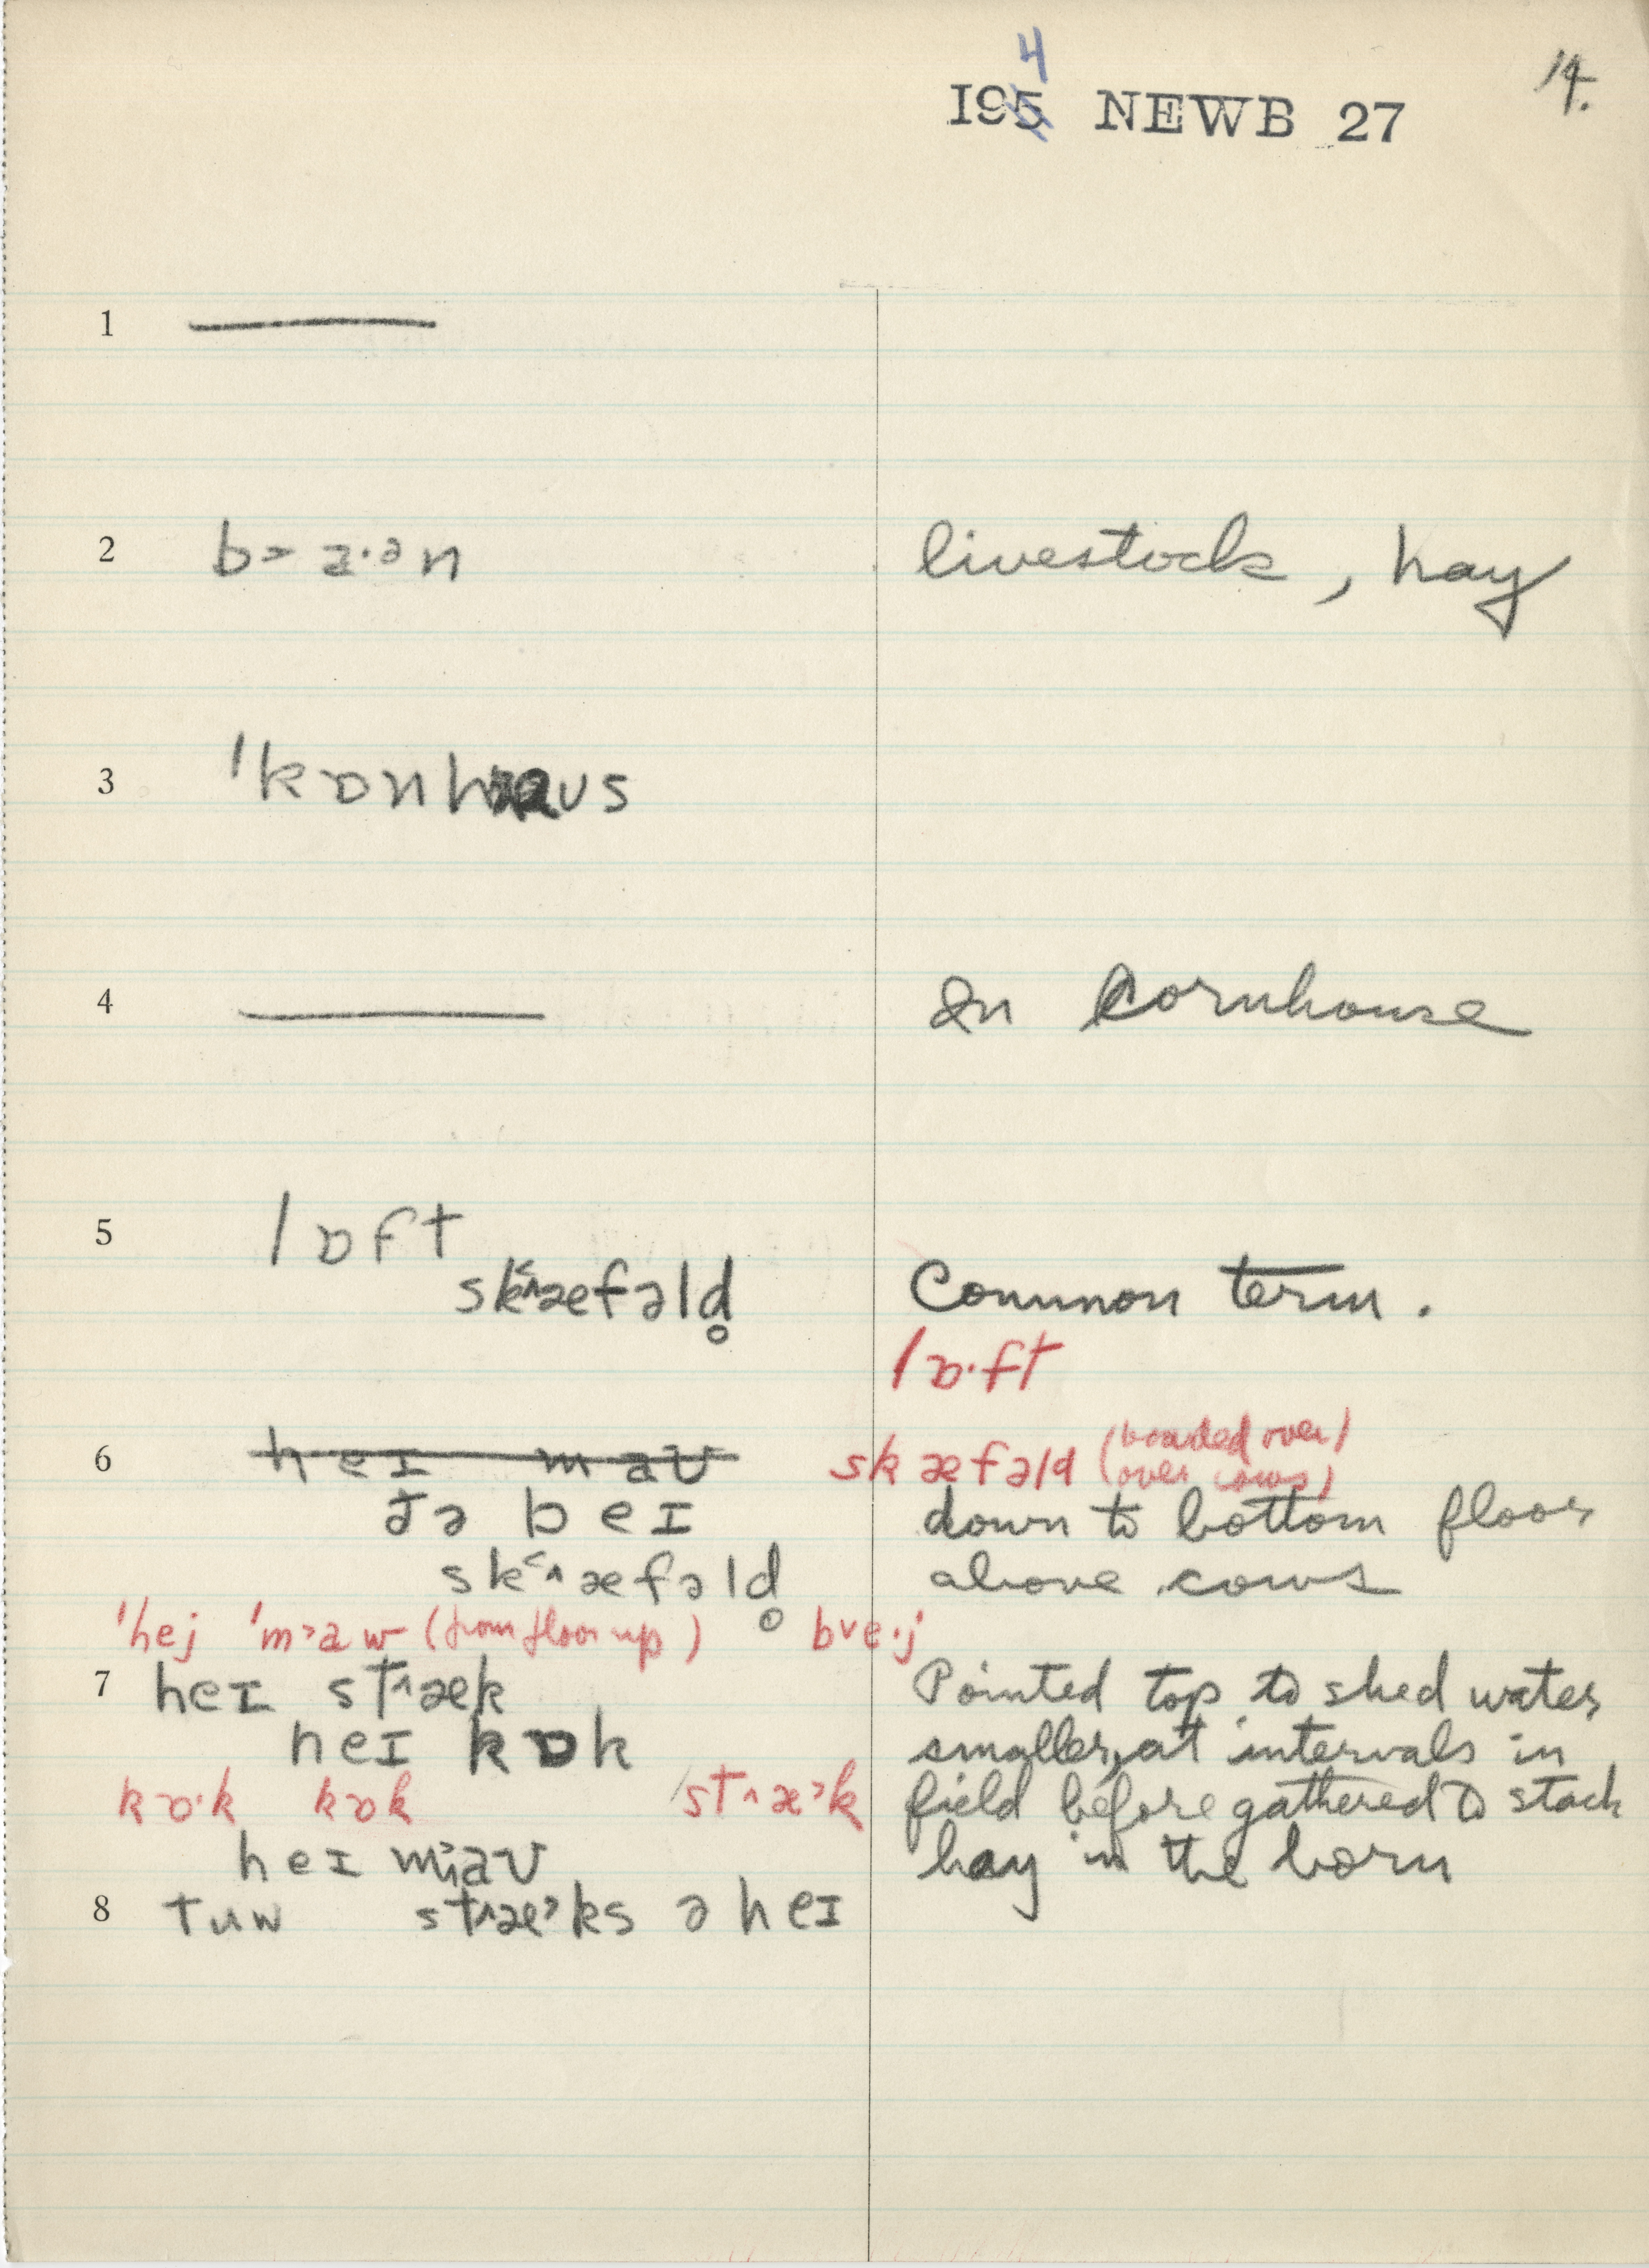 4
14.
195 NEWB 27
1
2 b> a·ən livestock, hay
3 ˈkɒnhaʊs
4 In Cornhouse
5 lɒft
sk<^æfəld̥ Common term.
lɒ·ft
6 heɪ maʊ skæfəld (boarded over)
(over cows)
ðə beɪ down to bottom floor
sk<^æfəld̥ above cows
ˈhej ˈm>aw (from floor up) bve·j
7 heɪ st^æk Pointed top to shed water
heɪ kɒk smaller, at intervals in
kɒ·k kɒk st^æ>k field before gathered to stack
heɪ maʊ hay in the barn
8 tuw st^æ>ks ə heɪ